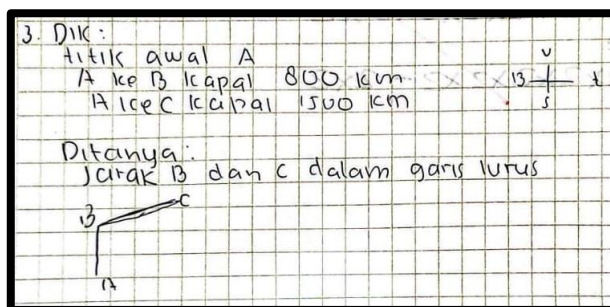 3. DIK:
titik awal A
A ke B kapal 800 km
A ke C kapal 1500 km
U
B t
S
Ditanya:
Jarak B dan C dalam garis lurus
B C
A